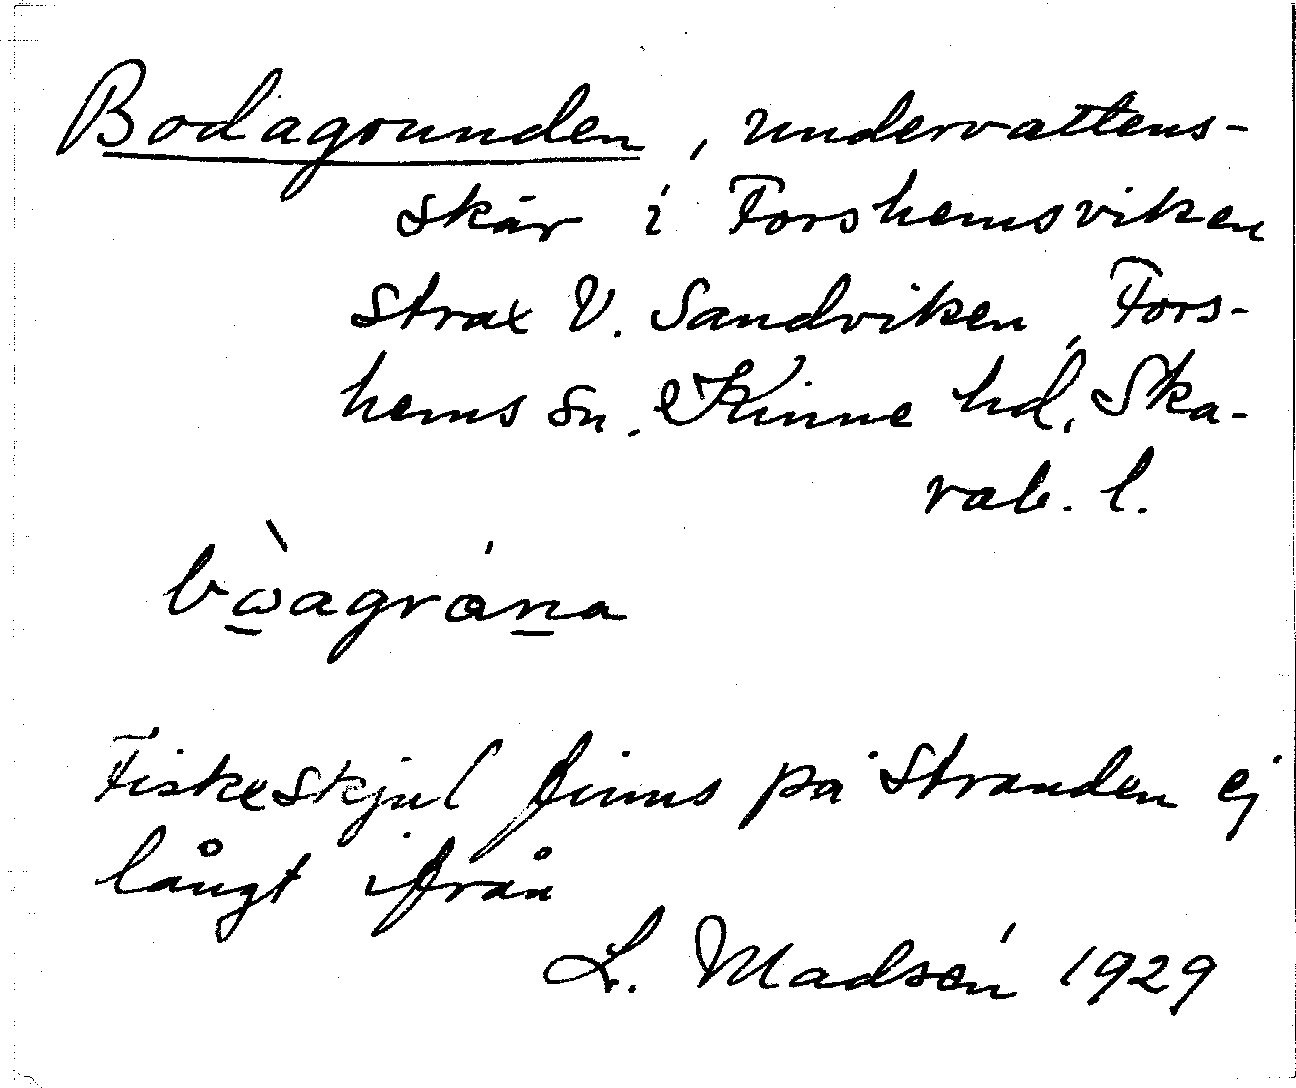 Bodagrunden, undervattens-
skär i Forshemsviken
strax V. Sandviken, Fors-
hems sn. Kinne hd, Ska-
rab. l.
bὼ̱agrána
Fiskeskjul finns på stranden ej
långt ifrån
L. Madsén 1929